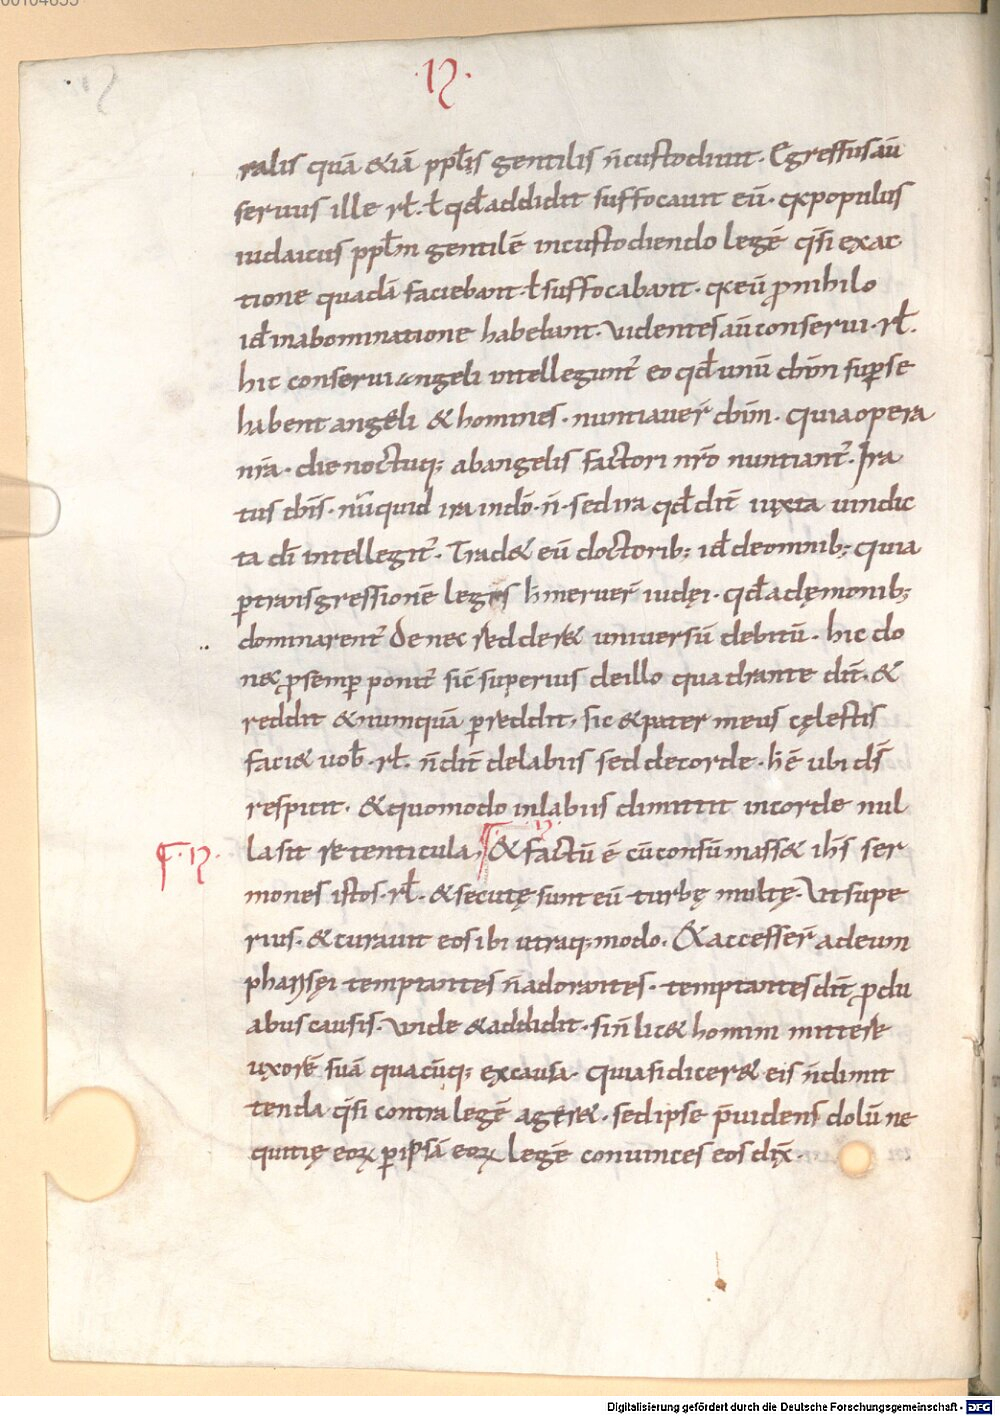 ·19·
ralis quā &iā ppl̄is gentilis n̄ custodiunt. Egressus aū
seruus ille rl̄. ł qd̄ addidit suffocauit eū. qꝛ populus
iudaicus ppl̄m gentilē incustodiendo legē q̄si exac
tione quadā faciebant. ł suffocabant. qꝛ eū ꝓnihilo
id̄ inabominatione habebant. Videntes aū conserui. rl̄.
hic conserui angeli intellegunt̄ eo qd̄ unū dn̄m sup̄ se
habent angeli & homines. nuntiauer̄ dn̄m. quia opera
nr̄a. die noctuq; ab angelis factori nr̄o nuntiant̄. Ira
tus dn̄s. nūquid ira in dō. n̄. sed ira qd̄ dīt iuxta uindic
ta dī intellegit̄. Trad& eū doctorib; id̄ deomnib; quia
ꝑ transgressionē legis h̄ meruer̄ iudęi. qd̄ a demonib;
dominarent̄ Denec redder& uniuersū debitū. hic do
nec ꝓ semꝑ ponit̄ sic̄ superius deillo quadrante dīt. &
reddit & numquā ꝑreddit, sic & pater meus cęlestis
faci& uob̄. rl̄. n̄ dīt delabiis sed decorde. h̄ ē ubi ds̄
respicit. & quomodo inlabiis dimittit incorde nul
la sit retenticula, & factū ē cū consūmass& ih̄s ser
mones istos. rl̄. & secutę sunt eū turbę multę. Vt supe
rius. & curauit eos ibi utraq; modo. & accesser̄ ad eum
pharisęi temptantes n̄ adorantes. temptantes dīt ꝓ du
abus causis. Vnde & addidit. sin̄ lic& homini mittere
uxorē suā quacūq; ex causa. quia si dicer& eis n̄ dimit
tenda q̄si contra legē ager&. sed ipse p̄uidens dolū ne
quitię eoꝝ ꝑ ipsā eoꝝ legē conuinces eos dix̄.
Digitalisierung gefördert durch die Deutsche Forschungsgemeinschaft - DFG